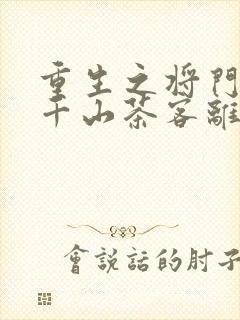 重生之将門
千山茶客離
會説話的肘子